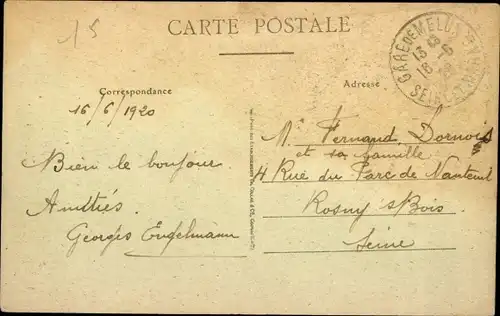 15
CARTE POSTALE
GARE DE MELUN
SEINE-ET-MARNE
Correspondance
Adresse
16/6/1920
Bien le bonjour
Amitiés.
Georges Engelmann
Mr Fernand Dornois
et sa famille
4 Rue du Parc de Nanteuil
Rosny s/Bois
Seine